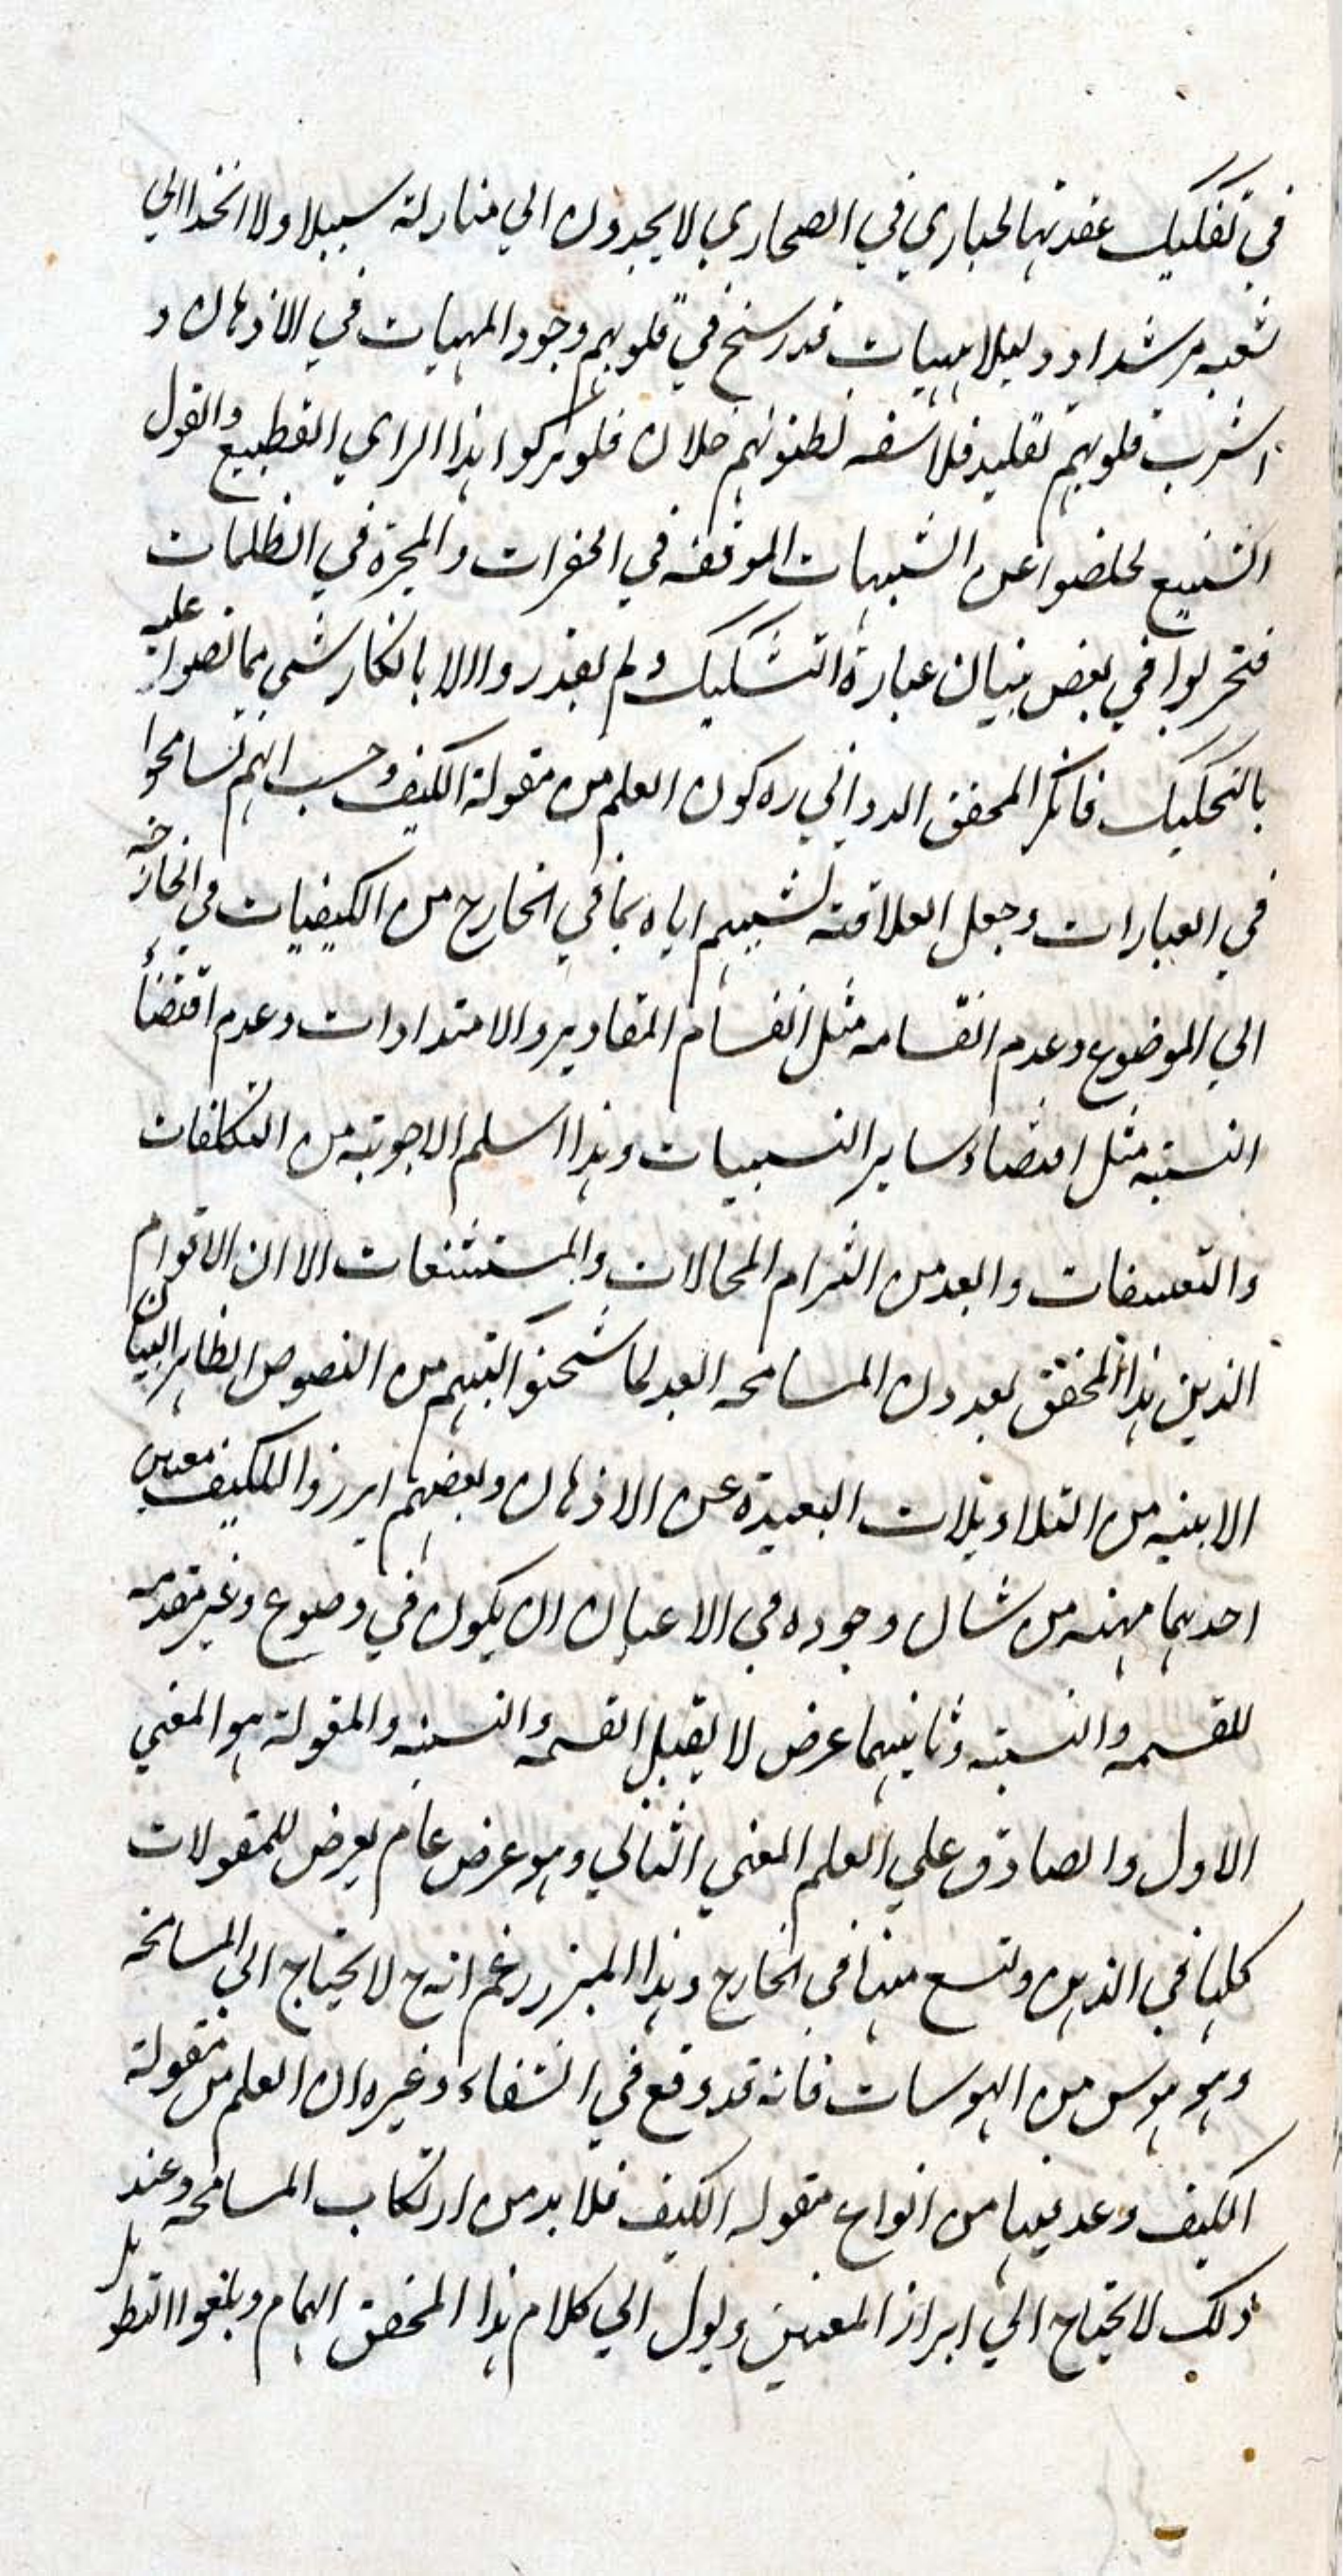 في تفكيك عقدتها كحباري في الصحاري لا يجدون الي منازلة سبيلا ولا اتخذ الي
شعبه مرشدا و دليلا هيهات قد رسخ في قلوبهم وجود المهيات في الاذهان و
اشرب قلوبهم تقليد فلاسفه لظنونهم خلان فلو تركوا هذا الراي الفظيع والقول
الشنيع لخلصوا عن الشبهات الموقفه في الحفرات والمجرة في الظلمات
فتحر لوا في بعض بنيان عبارة التشكيك ولم يقدروا الا بانكار شي مما نصوا عليه
بالتحكيك فانكر المحقق الدواني ره كون العلم من مقولة الكيف وحسب انهم تسامحوا
في العبارات وجعل العلاقة تشبيههم اياه بما في الخارج من الكيفيات في
الي الموضوع وعدم انقسامه مثل انقسام المقادير والامتدادات وعدم اقتضاء
النسبة مثل اقتضاء ساير النسبيات وهذا اسلم الاجوبة من التكلفات
والتعسفات وابعد من التزام المحالات والمستشنعات الا ان الاقوام
الذين هذا المحقق بعددون المسامحه ابعد لما شحنوا كتبهم من النصوص الظاهر البيان
الابنيه من التلاويلات البعيدة عن الاذهان وبعضهم ابرزوا للكيف معنيين
احدهما مهية من شان وجوده في الاعيان ان يكون في وضوع وغير مقدمه
للقسمه والنسبة وثانيهما عرض لا يقبل القسمه والنسبه والمقولة هو المعني
الاول والصادق علي العلم المعني الثاني وهو عرض عام يعرض للمقولات
كلها في الذهن وتسع منها في الخارج وهذا المبرز زعم انه ح لا يحتاج الي المسامحه
وهو هوس من الهوسات فانه قد وقع في الشفاء وغيره ان العلم من مقولة
الكيف وعد فيها من انواع مقوله الكيف فلا بد من ارتكاب المسامحه وعند
ذلك لا يحتاج الي ابراز المعنيين ويول الي كلام هذا المحقق الهمام وبلغوا التطويل